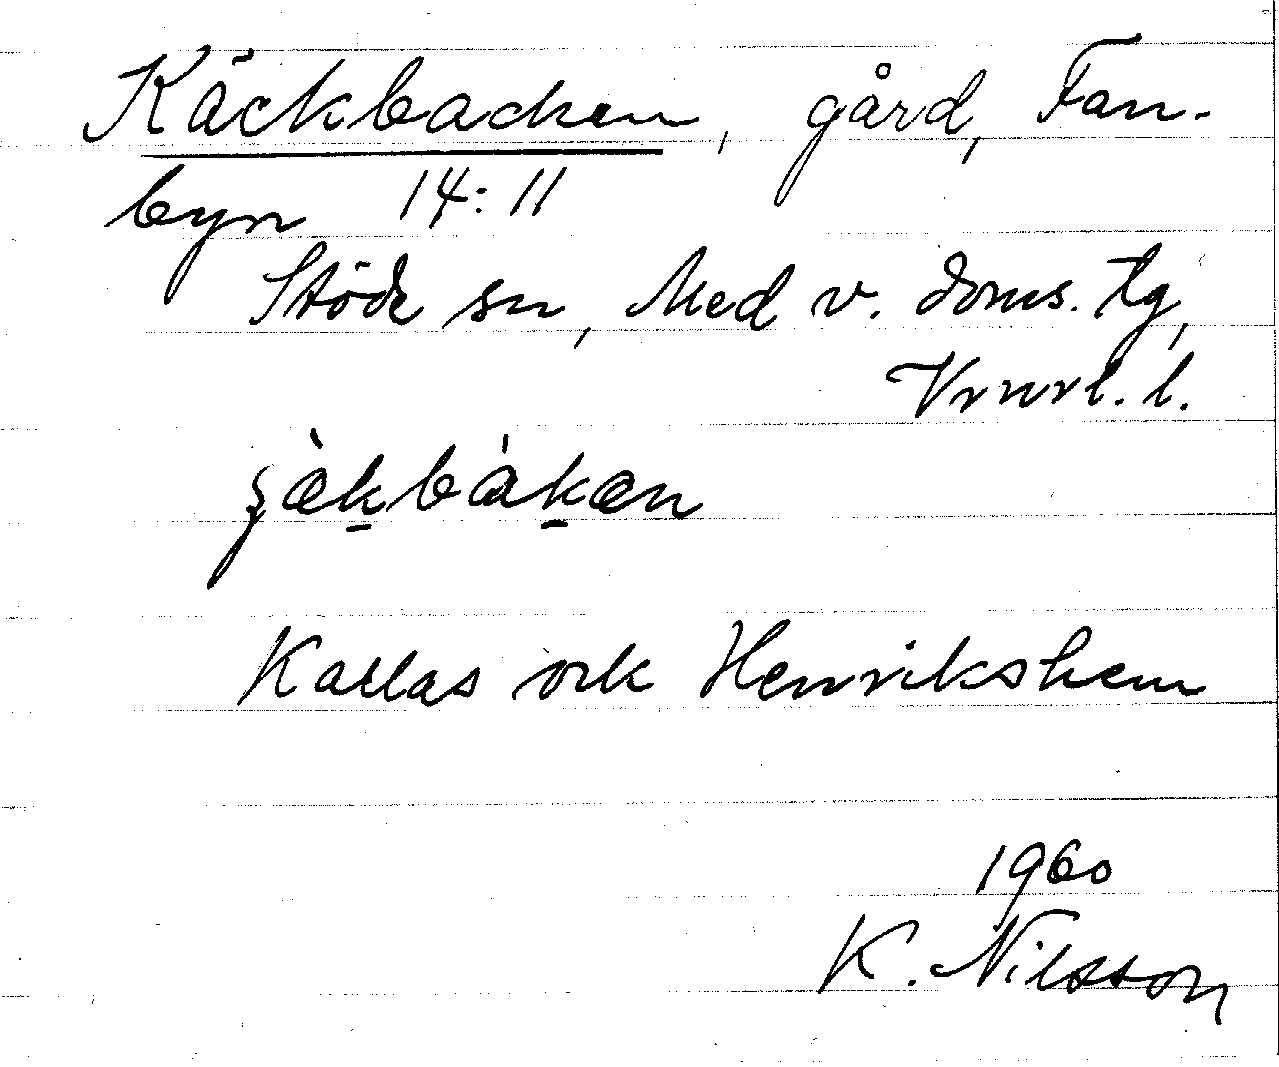 Käckbacken, gård, Fan-
byn 14:11
Stöde sn, Med v. doms. tg,
Vrnrl. l.
Kallas ock Henrikshem
1960
K. Nilsson